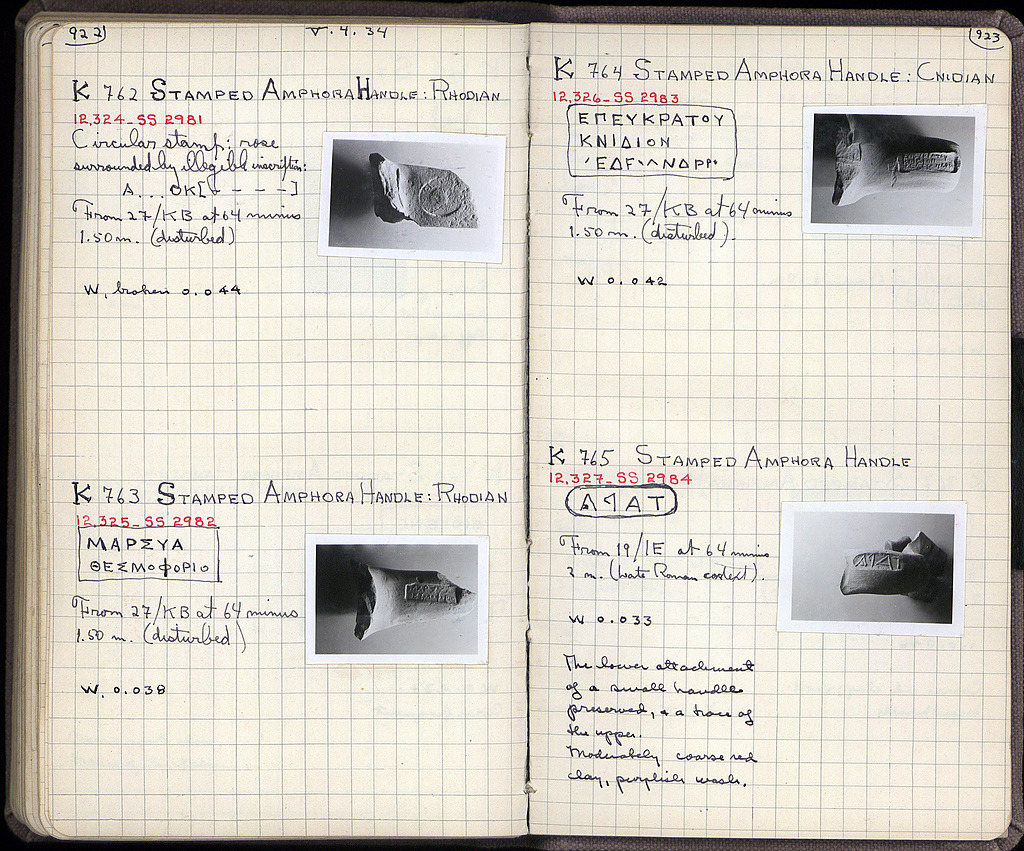 922
V.4.34
K 762 STAMPED AMPHORA HANDLE: RHODIAN
12,324-SS 2981
Circular stamp: rose
surrounded by illegible inscription:
A...OK[----]
From 27/KB at 64 minus
1.50 m. (disturbed)
W. broken 0.044
K 763 STAMPED AMPHORA HANDLE: RHODIAN
12,325-SS 2982
ΜΑΡΣΥΑ
ΘΕΣΜΟΦΟΡΙΟ
From 27/KB at 64 minus
1.50 m. (disturbed)
W. 0.038
923
K 764 STAMPED AMPHORA HANDLE: CNIDIAN
12,326-SS 2983
ΕΠΕΥΚΡΑΤΟΥ
ΚΝΙΔΙΟΝ
From 27/KB at 64 minus
1.50 m. (disturbed).
W 0.042
K 765 STAMPED AMPHORA HANDLE
12,327-SS 2984
From 19/IE at 64 minus
2 m. (Late Roman context).
W 0.033
The lower attachment
of a small handle
preserved, & a trace of
the upper.
Moderately coarse red
clay, purplish wash.